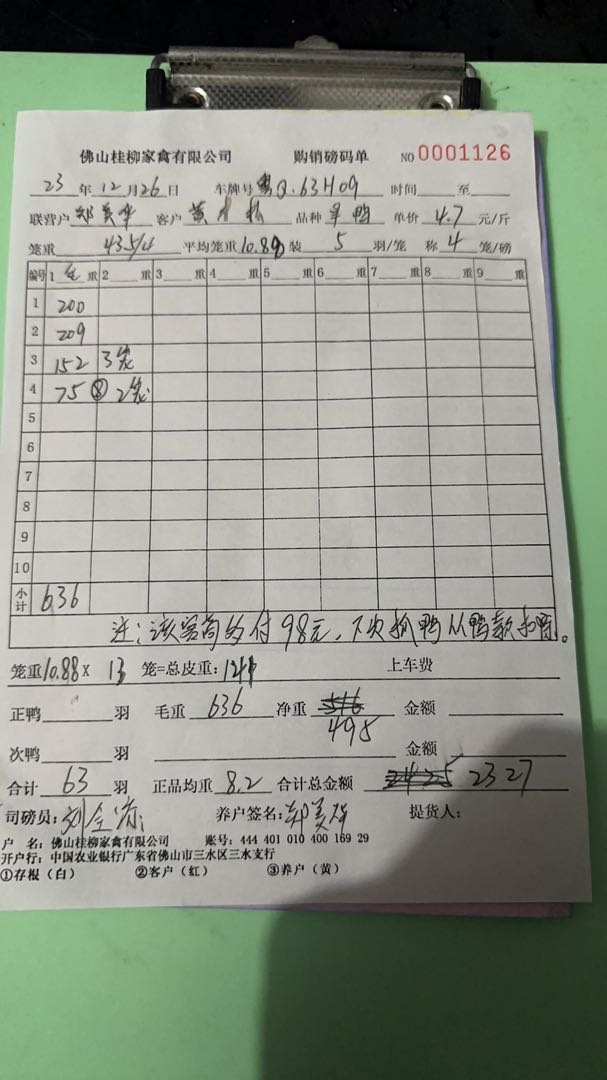 佛山桂柳家禽有限公司 购销磅码单 NO 0001126
23 年 12 月 26 日 车牌号 粤Q.63H09 时间 至
联营户 郑美华 客户 黄 品种 旱鸭 单价 4.7 元/斤
笼重 43.5/4 平均笼重 10.88 装 5 羽/笼 称 4 笼/磅
编号 1 毛 重 2 重 3 重 4 重 5 重 6 重 7 重 8 重 9 重
1 200
2 209
3 152 3笼
4 75 ⑧ 2笼
5
6
7
8
9
10
小计 636
注:该客商 付98元,下次抓鸭从鸭款扣回。
笼重 10.88 X 13 笼=总皮重: 141 上车费
正鸭 羽 毛重 636 净重 495 金额
次鸭 羽 金额
合计 63 羽 正品均重 8.2 合计总金额 2327
司磅员: 养户签名: 郑美华 提货人:
户 名: 佛山桂柳家禽有限公司 账号: 444 401 010 400 169 29
开户行: 中国农业银行广东省佛山市三水区三水支行
①存根(白) ②客户(红) ③养户(黄)